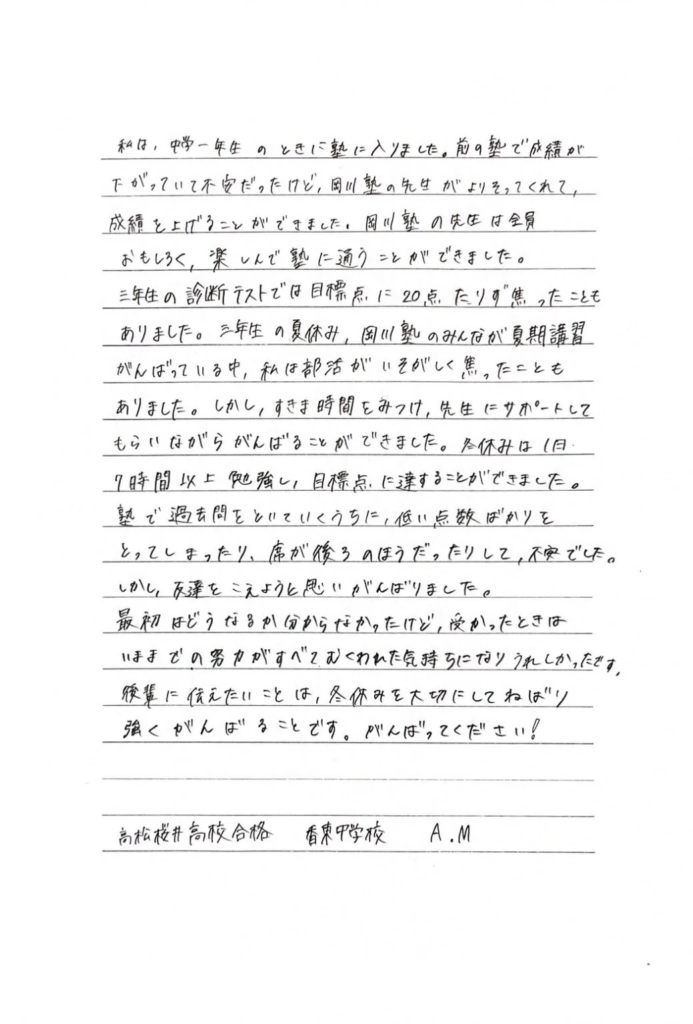 私は、中学一年生のときに塾に入りました。前の塾で成績が
下がっていて不安だったけど、岡川塾の先生がよりそってくれて、
成績を上げることができました。岡川塾の先生は全員
おもしろく、楽しんで塾に通うことができました。
三年生の診断テストでは目標点に20点たりず焦ったことも
ありました。三年生の夏休み、岡川塾のみんなが夏期講習
がんばっている中、私は部活がいそがしく焦ったことも
ありました。しかし、すきま時間をみつけ、先生にサポートして
もらいながらがんばることができました。冬休みは1日
7時間以上勉強し、目標点に達することができました。
塾で過去問をといていくうちに、低い点数ばかりを
とってしまったり、席が後ろのほうだったりして、不安でした。
しかし、友達をこえようと思いがんばりました。
最初はどうなるか分からなかったけど、受かったときは
いままでの努力がすべてむくわれた気持ちになりうれしかったです。
後輩に伝えたいことは、冬休みを大切にしてねばり
強くがんばることです。がんばってください!
高松桜井高校合格 香東中学校 A.M